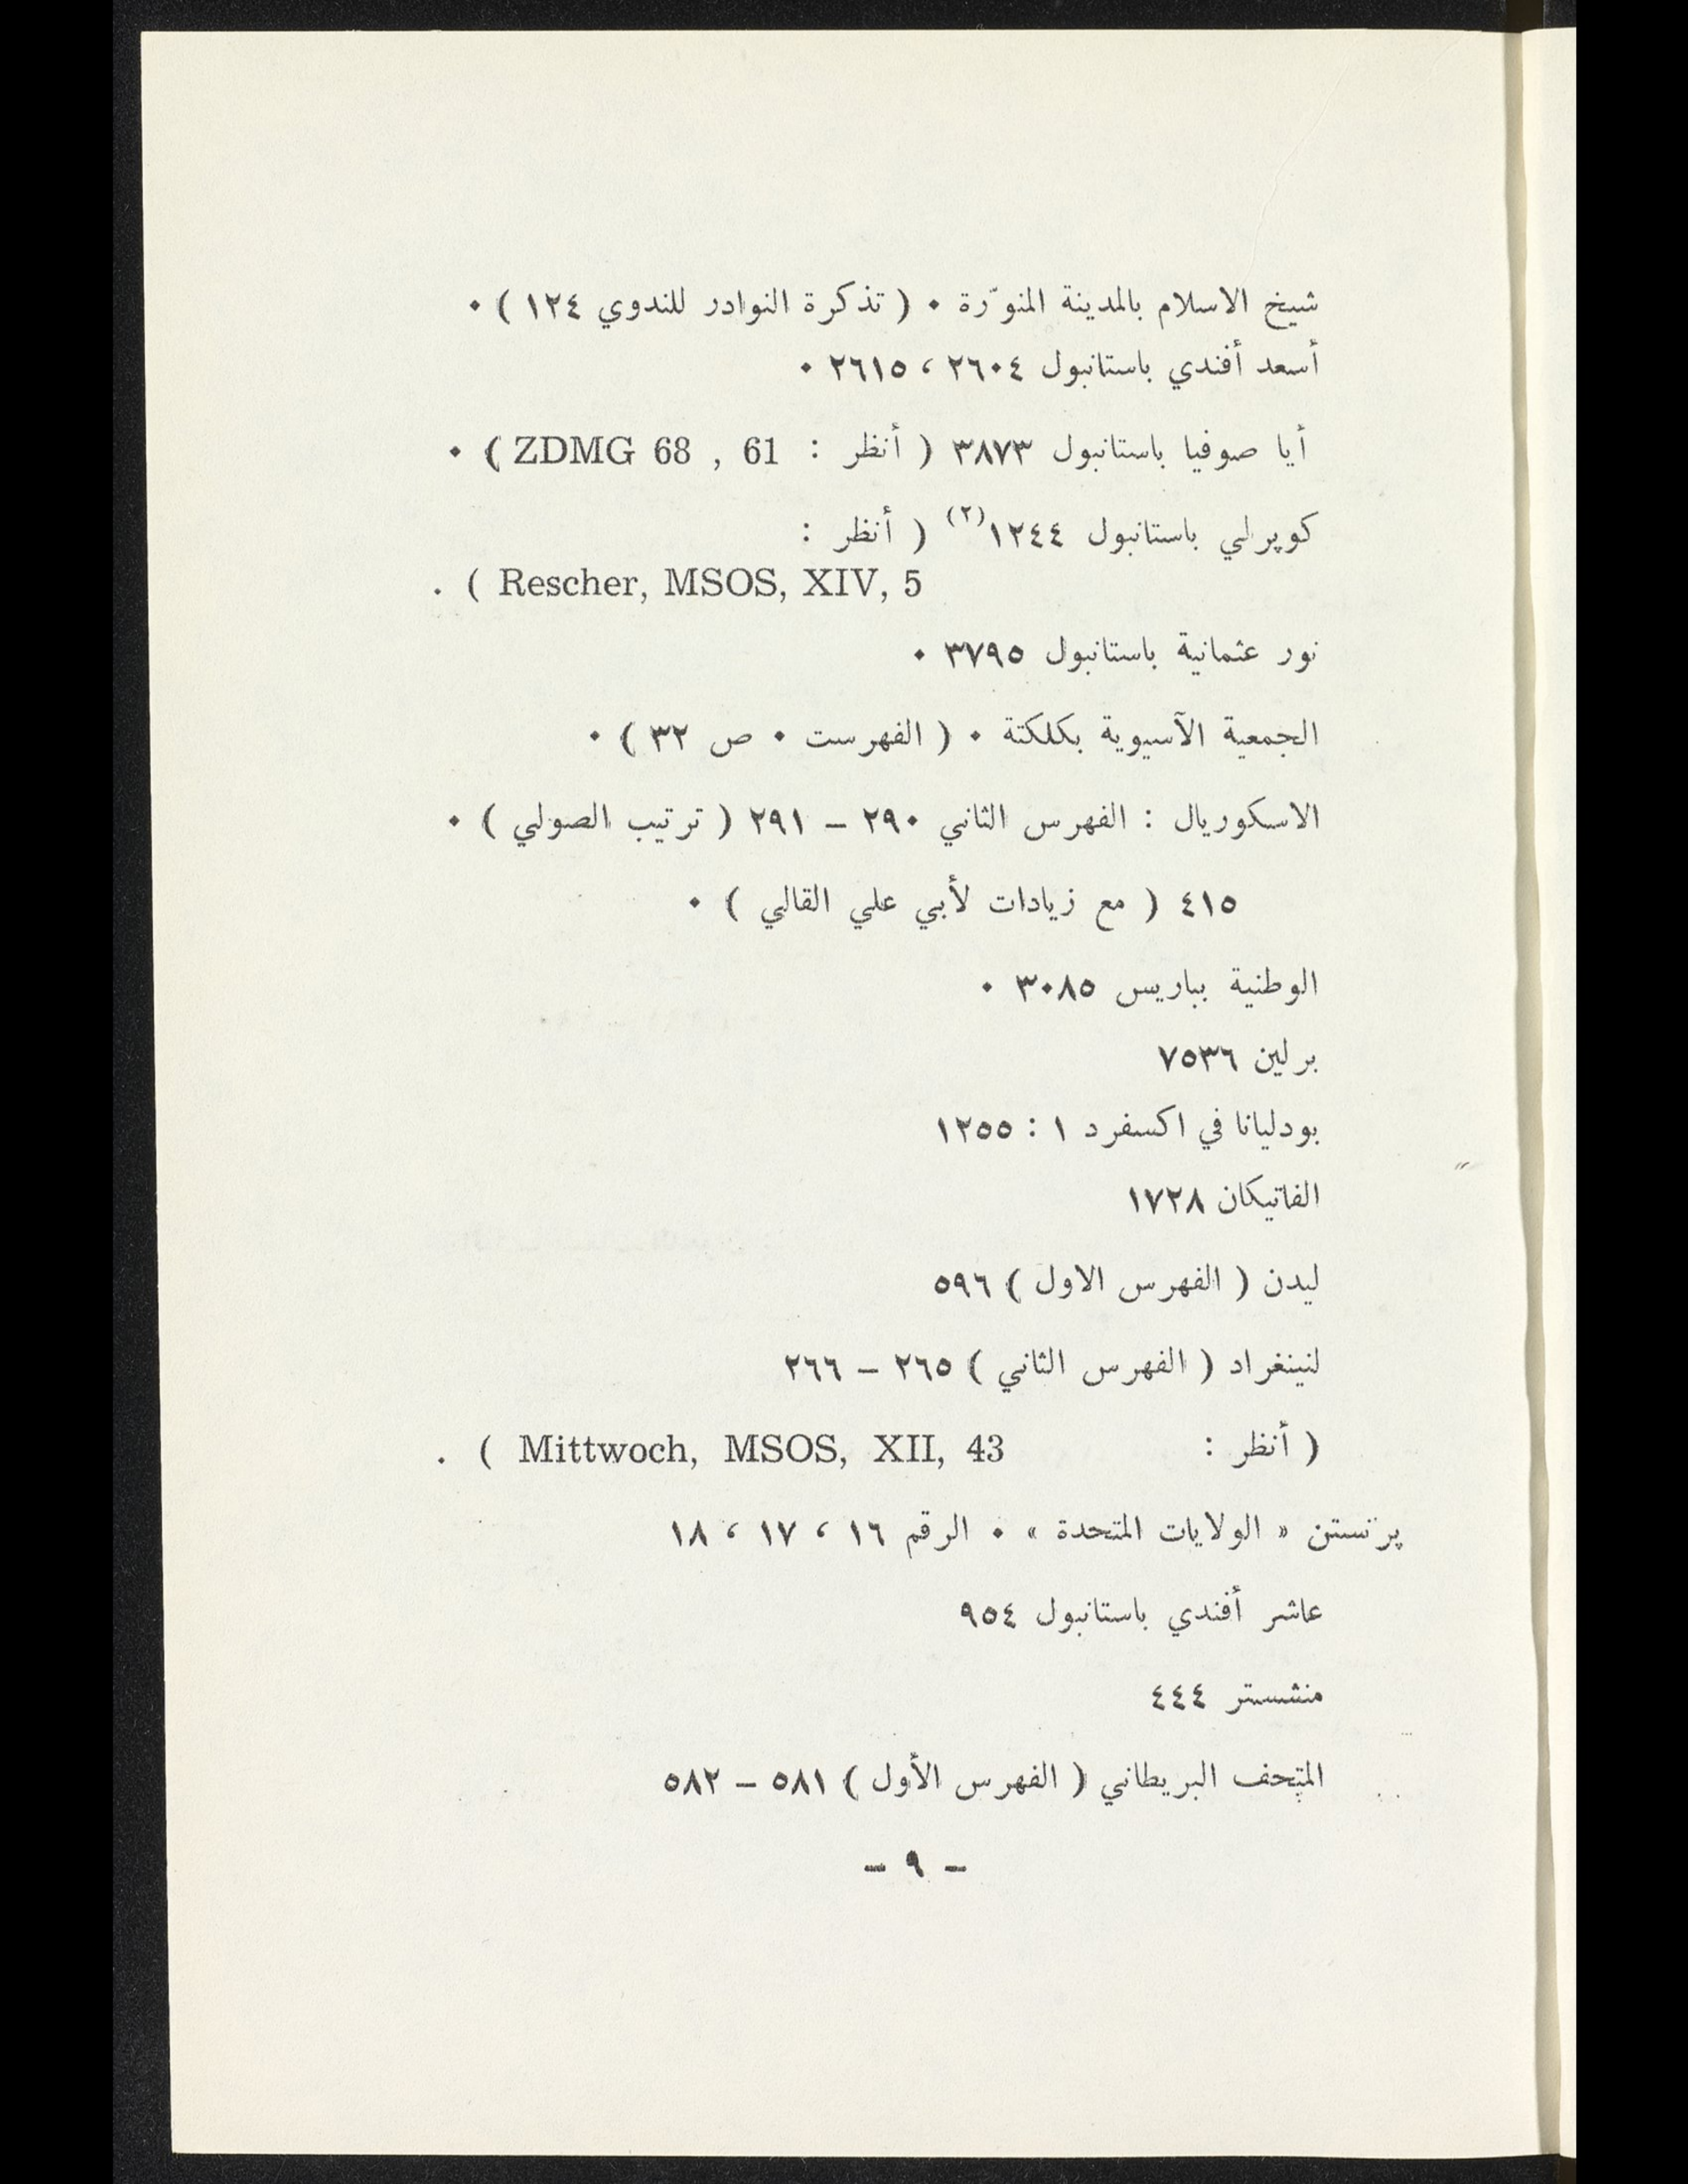 شيخ الاسلام بالمدينة المنوّرة ٠ ( تذكرة النوادر للندوي ١٢٤ ) ٠
أسعد أفندي باستانبول ٢٦٠٤ ، ٢٦١٥ ٠
أيا صوفيا باستانبول ٣٨٧٣ ( أنظر : ZDMG 68 , 61 ) ٠
كوپرلي باستانبول ١٢٤٤(٢) ( أنظر :
Rescher, MSOS, XIV, 5 ) .
نور عثمانية باستانبول ٣٧٩٥ ٠
الجمعية الآسيوية بكلكتة ٠ ( الفهرست ٠ ص ٣٢ ) ٠
الاسكوريال : الفهرس الثاني ٢٩٠ – ٢٩١ ( ترتيب الصولي ) ٠
٤١٥ ( مع زيادات لأبي علي القالي ) ٠
الوطنية بباريس ٣٠٨٥ ٠
برلين ٧٥٣٦
بودليانا في اكسفرد ١ : ١٢٥٥
الفاتيكان ١٧٢٨
ليدن ( الفهرس الاول ) ٥٩٦
لنينغراد ( الفهرس الثاني ) ٢٦٥ – ٢٦٦
( أنظر : Mittwoch, MSOS, XII, 43 ) .
پرنستن « الولايات المتحدة » ٠ الرقم ١٦ ، ١٧ ، ١٨
عاشر أفندي باستانبول ٩٥٤
منشستر ٤٤٤
المتحف البريطاني ( الفهرس الأول ) ٥٨١ – ٥٨٢
– ٩ –